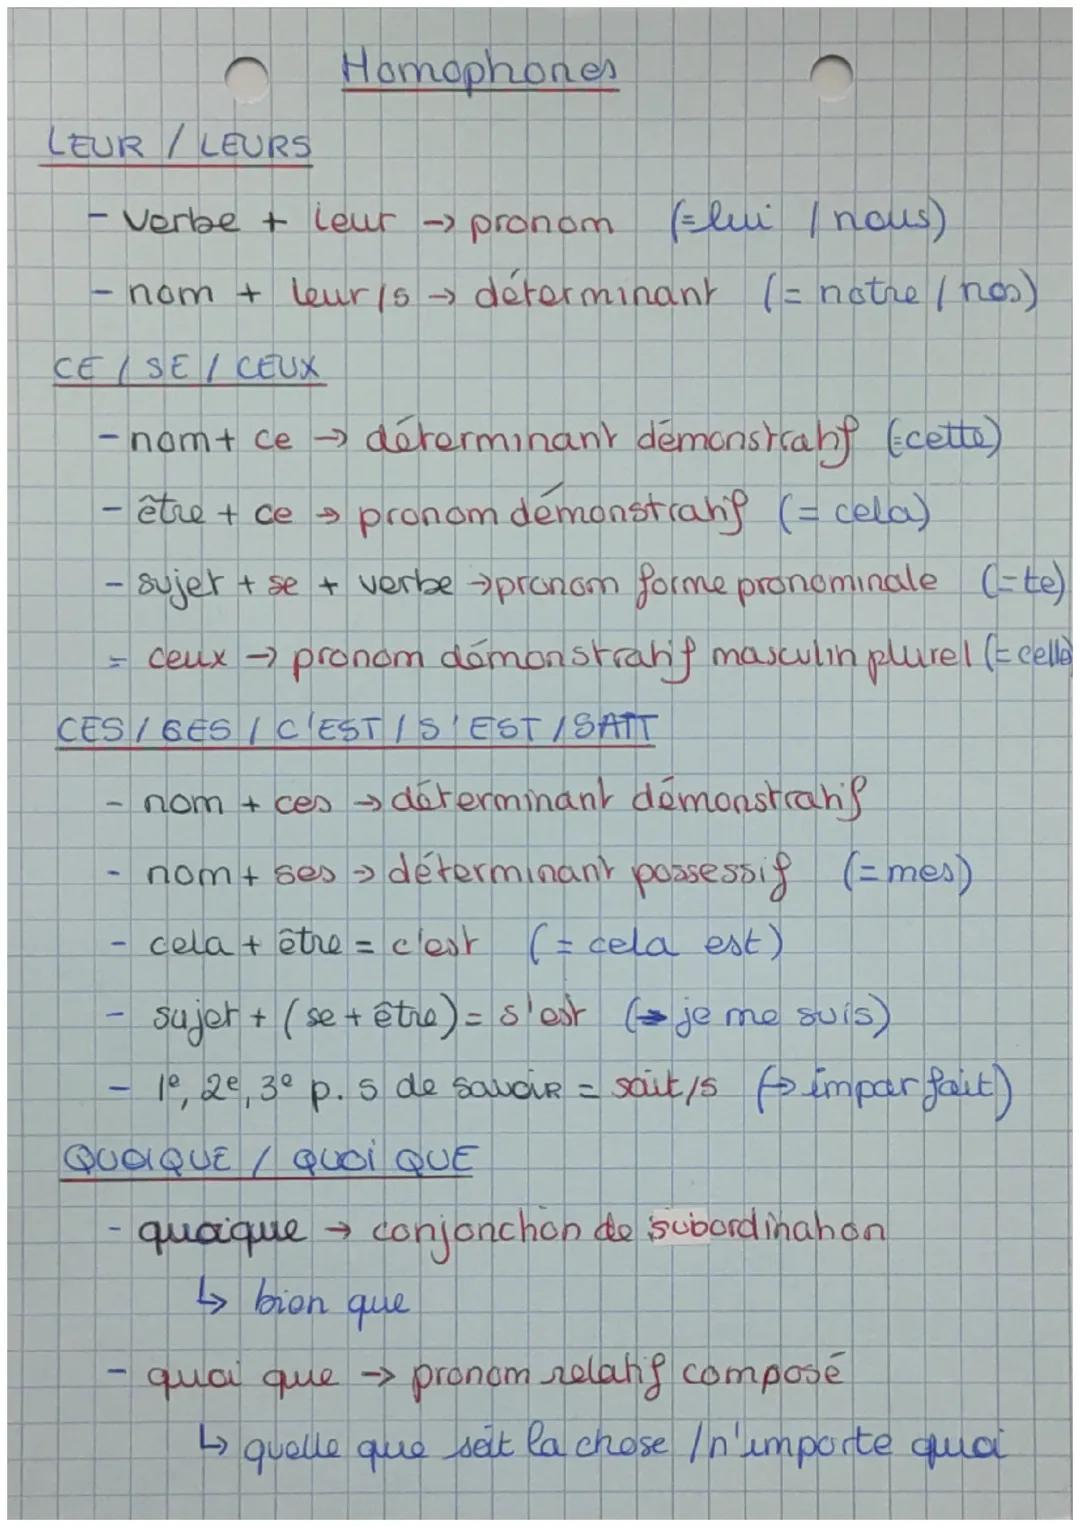 Homophones
LEUR / LEURS
- verbe + leur → pronom (= lui / nous)
- nom + leur/s → déterminant (= notre / nos)
CE / SE / CEUX
- nom + ce → déterminant démonstratif (= cette)
- être + ce → pronom démonstratif (= cela)
- sujet + se + verbe → pronom forme pronominale (= te)
= ceux → pronom démonstratif masculin pluriel (= celle)
CES / SES / C'EST / S'EST / SAIT
- nom + ces → déterminant démonstratif
- nom + ses → déterminant possessif (= mes)
- cela + être = c'est (= cela est)
- sujet + (se + être) = s'est (→ je me suis)
- 1e, 2e, 3e p. s de savoir = sait/s (→ imparfait)
QUOIQUE / QUOI QUE
- quoique → conjonction de subordination
↳ bien que
- quoi que → pronom relatif composé
↳ quelle que soit la chose / n'importe quoi